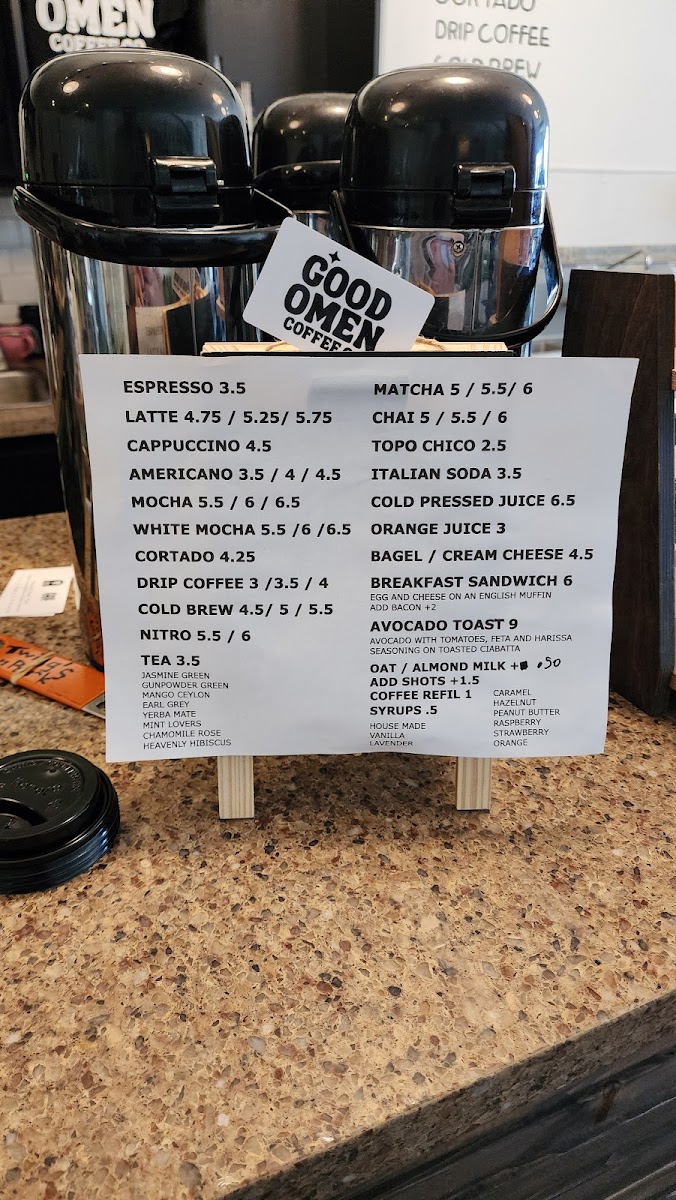 OMEN
COFFEE CO
CORTADO
DRIP COFFEE
COLD BREW
GOOD
OMEN
COFFEE
ESPRESSO 3.5
LATTE 4.75 / 5.25/ 5.75
CAPPUCCINO 4.5
AMERICANO 3.5 / 4 / 4.5
MOCHA 5.5 / 6 / 6.5
WHITE MOCHA 5.5 /6 /6.5
CORTADO 4.25
DRIP COFFEE 3 /3.5 / 4
COLD BREW 4.5/ 5 / 5.5
NITRO 5.5 / 6
TEA 3.5
JASMINE GREEN
GUNPOWDER GREEN
MANGO CEYLON
EARL GREY
YERBA MATE
MINT LOVERS
CHAMOMILE ROSE
HEAVENLY HIBISCUS
MATCHA 5 / 5.5/ 6
CHAI 5 / 5.5 / 6
TOPO CHICO 2.5
ITALIAN SODA 3.5
COLD PRESSED JUICE 6.5
ORANGE JUICE 3
BAGEL / CREAM CHEESE 4.5
BREAKFAST SANDWICH 6
EGG AND CHEESE ON AN ENGLISH MUFFIN
ADD BACON +2
AVOCADO TOAST 9
AVOCADO WITH TOMATOES, FETA AND HARISSA
SEASONING ON TOASTED CIABATTA
OAT / ALMOND MILK + .50
ADD SHOTS +1.5
COFFEE REFIL 1
SYRUPS .5
HOUSE MADE
VANILLA
LAVENDER
CARAMEL
HAZELNUT
PEANUT BUTTER
RASPBERRY
STRAWBERRY
ORANGE